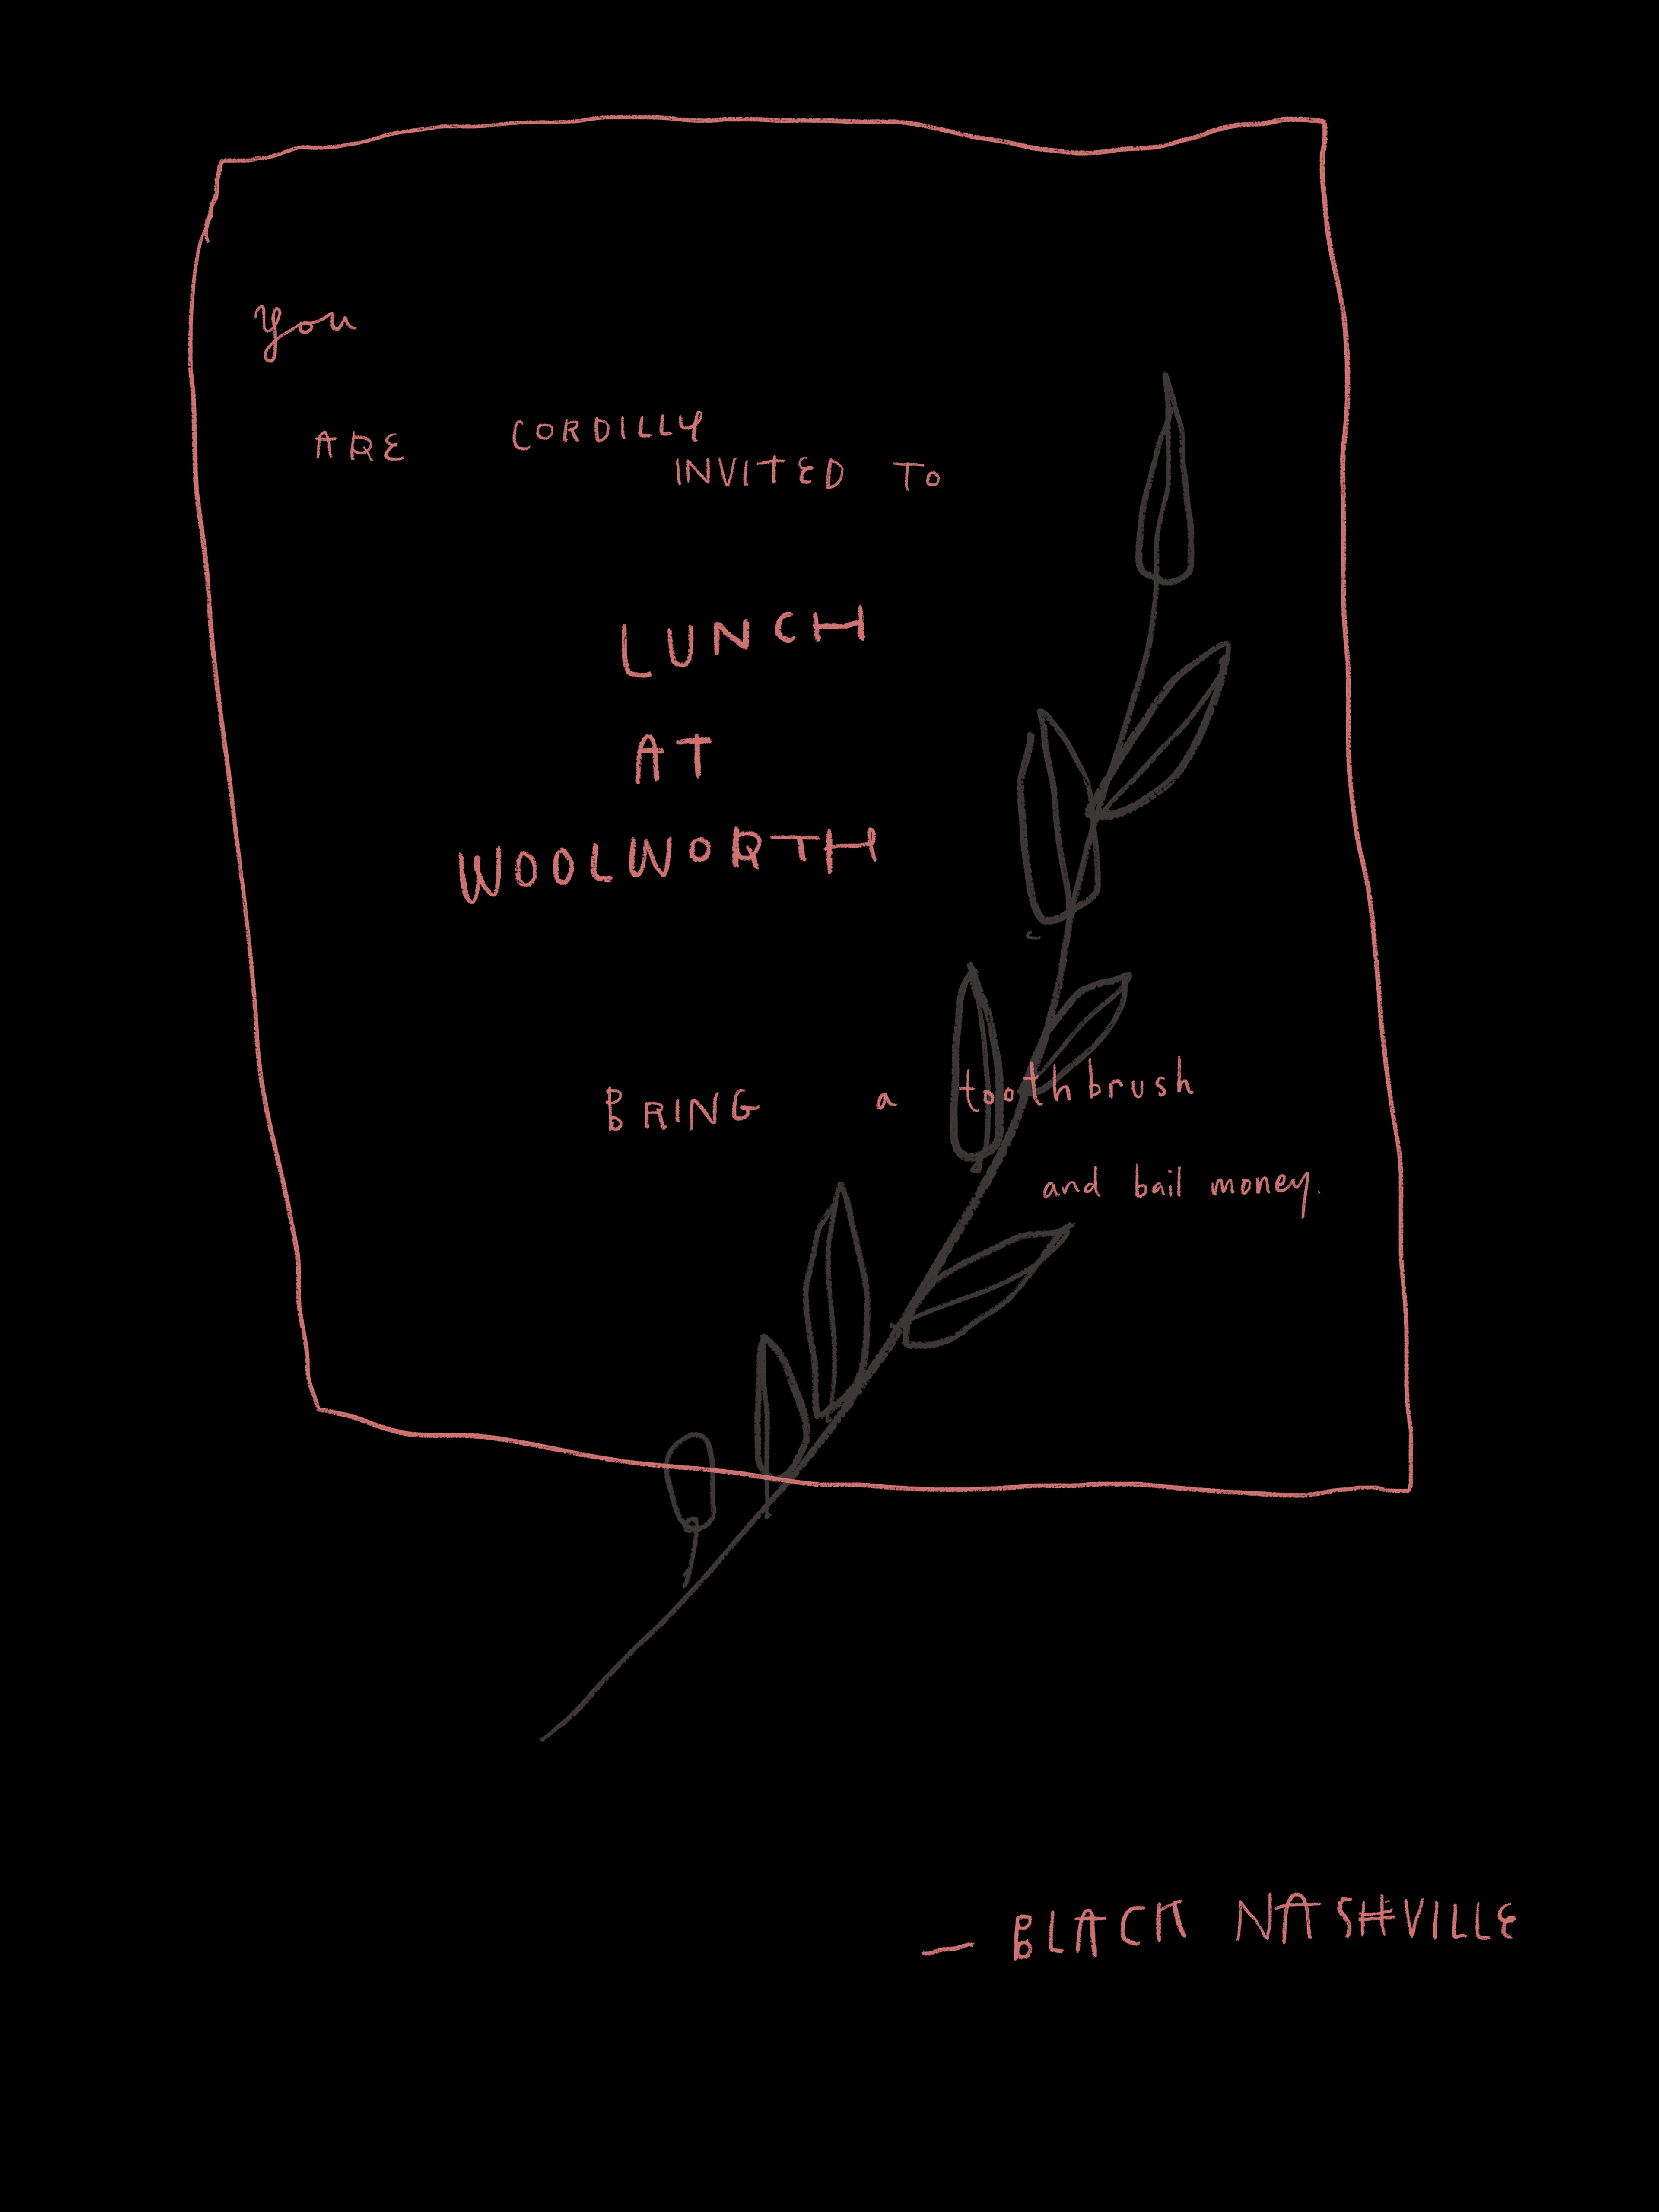 You
ARE CORDILLY
INVITED TO
LUNCH
AT
WOOLWORTH
BRING a toothbrush
and bail money.
— BLACK NASHVILLE